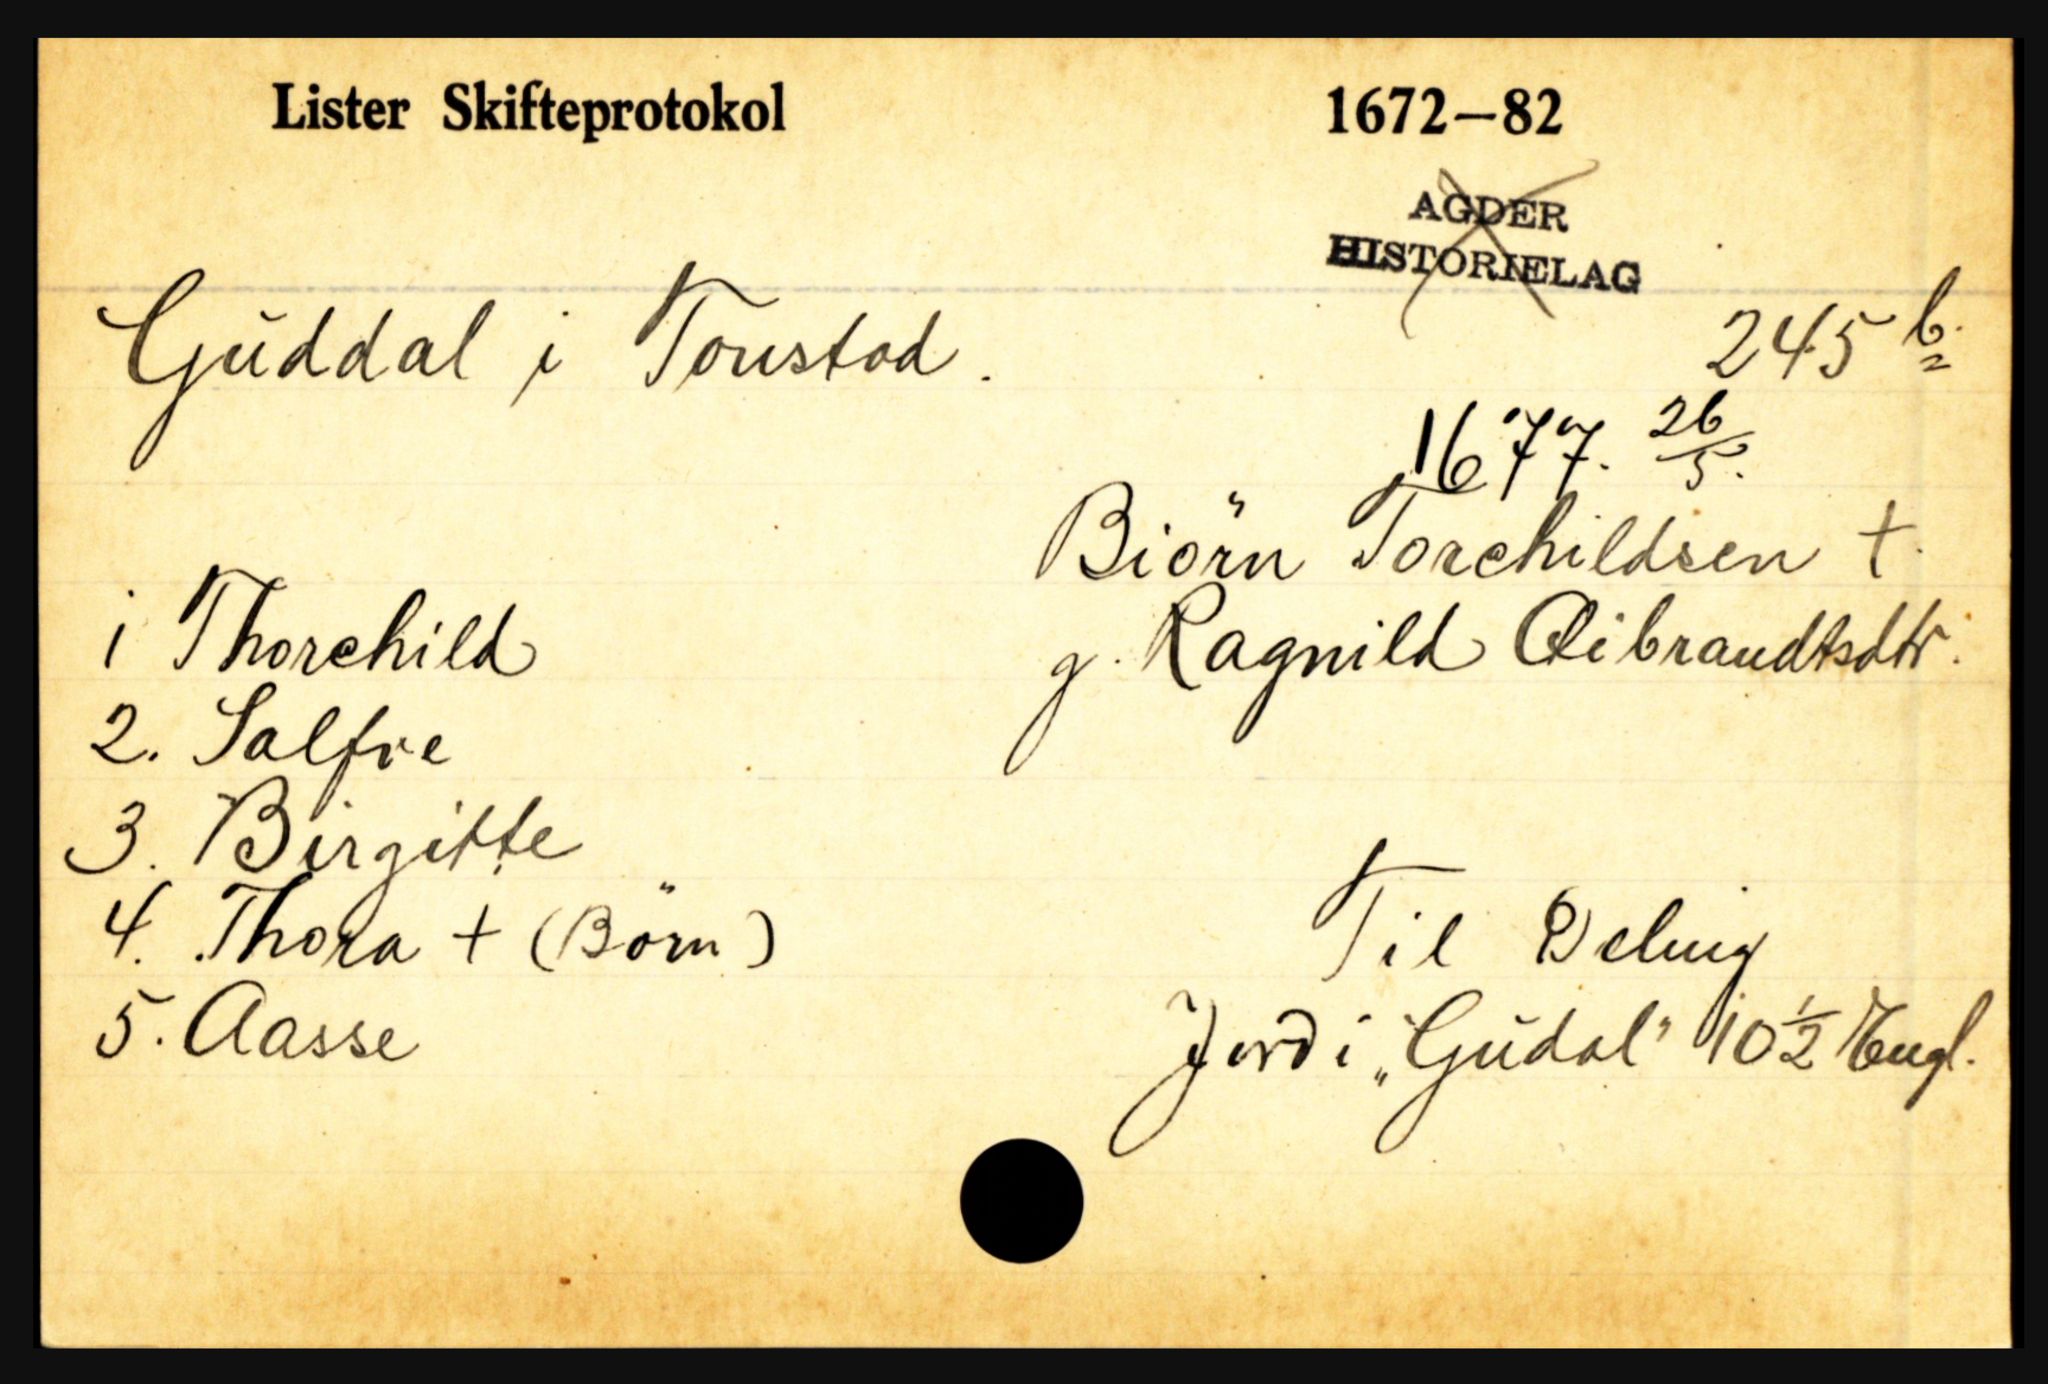 Lister Skifteprotokol 1672—82
AGDER
HISTORIELAG
Gŭddal i Tonstad. 245 b.
1677. 26/5.
Biörn Torchildsen +.
g. Ragnild Eibrandtsdtr.
1 Thorchild
2. Salfve
3. Birgitte
4. Thora + (Börn)
5. Aasse
Til Deling
Jord i „Gŭdal" 10 1/2 Engl.